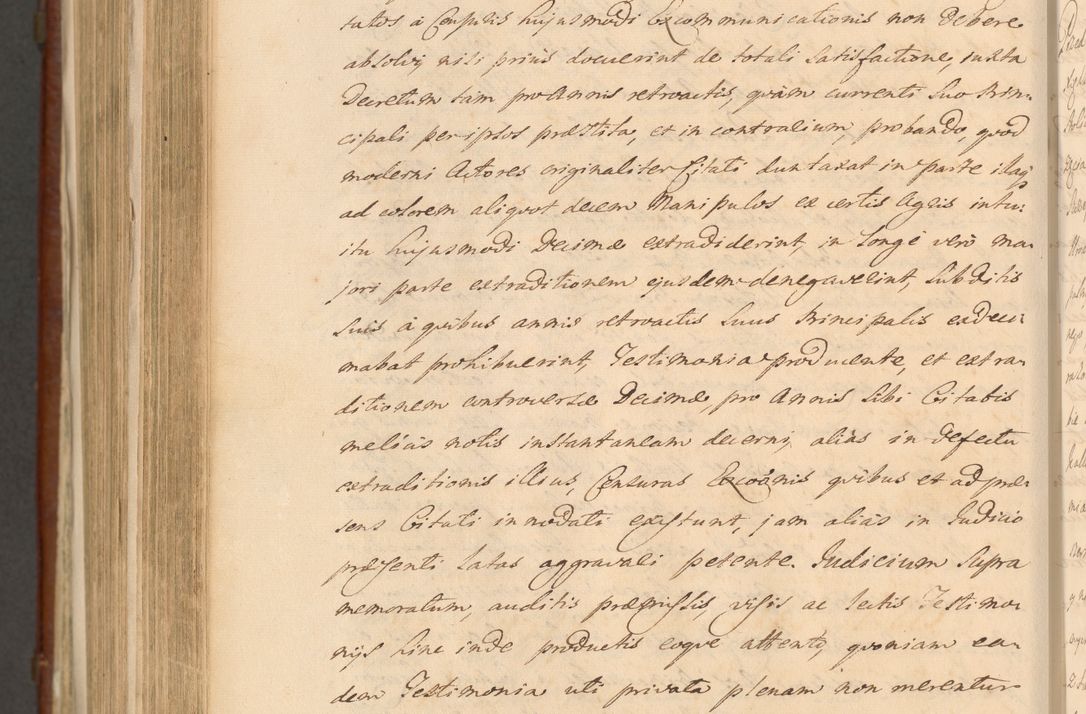 tutos à Censuris hujusmodi Excommunicationis non debere
absolvi, nisi prius docuerint de totali satisfactione, juxta
Decretum tam pro Annis retroactis, quàm currenti suo Prin-
cipali per ipsos præstita, et in contrarium probando, quod
moderni Actores originaliter Citati duntaxat in parte illaq
ad colorem aliquot decem Manipulos ex certis Agris intu-
itu hujusmodi Decimæ extradiderint, in longè verò ma-
jori parte extraditionem ejusdem denegaverint, subditis
suis à quibus annis retroactis suus Principalis exdeci-
mabat prohibuerint, Testimonia producente, et extra-
ditionem controversæ Decimæ, pro Annis sibi Citatis
meliùs notis instantaneam decerni, aliàs in defectu
extraditionis illius, Censuras Excoōnis quibus et ad præ-
sens Citati innodati existunt, jam aliàs in Judicio
præsenti latas aggravari petente. Judicium supra
memoratum, auditis præmissis, visis ac lectis Testimo-
nijs hinc inde productis eoque attento, quoniam ea-
dem Testimonia uti privata plenam non merentur